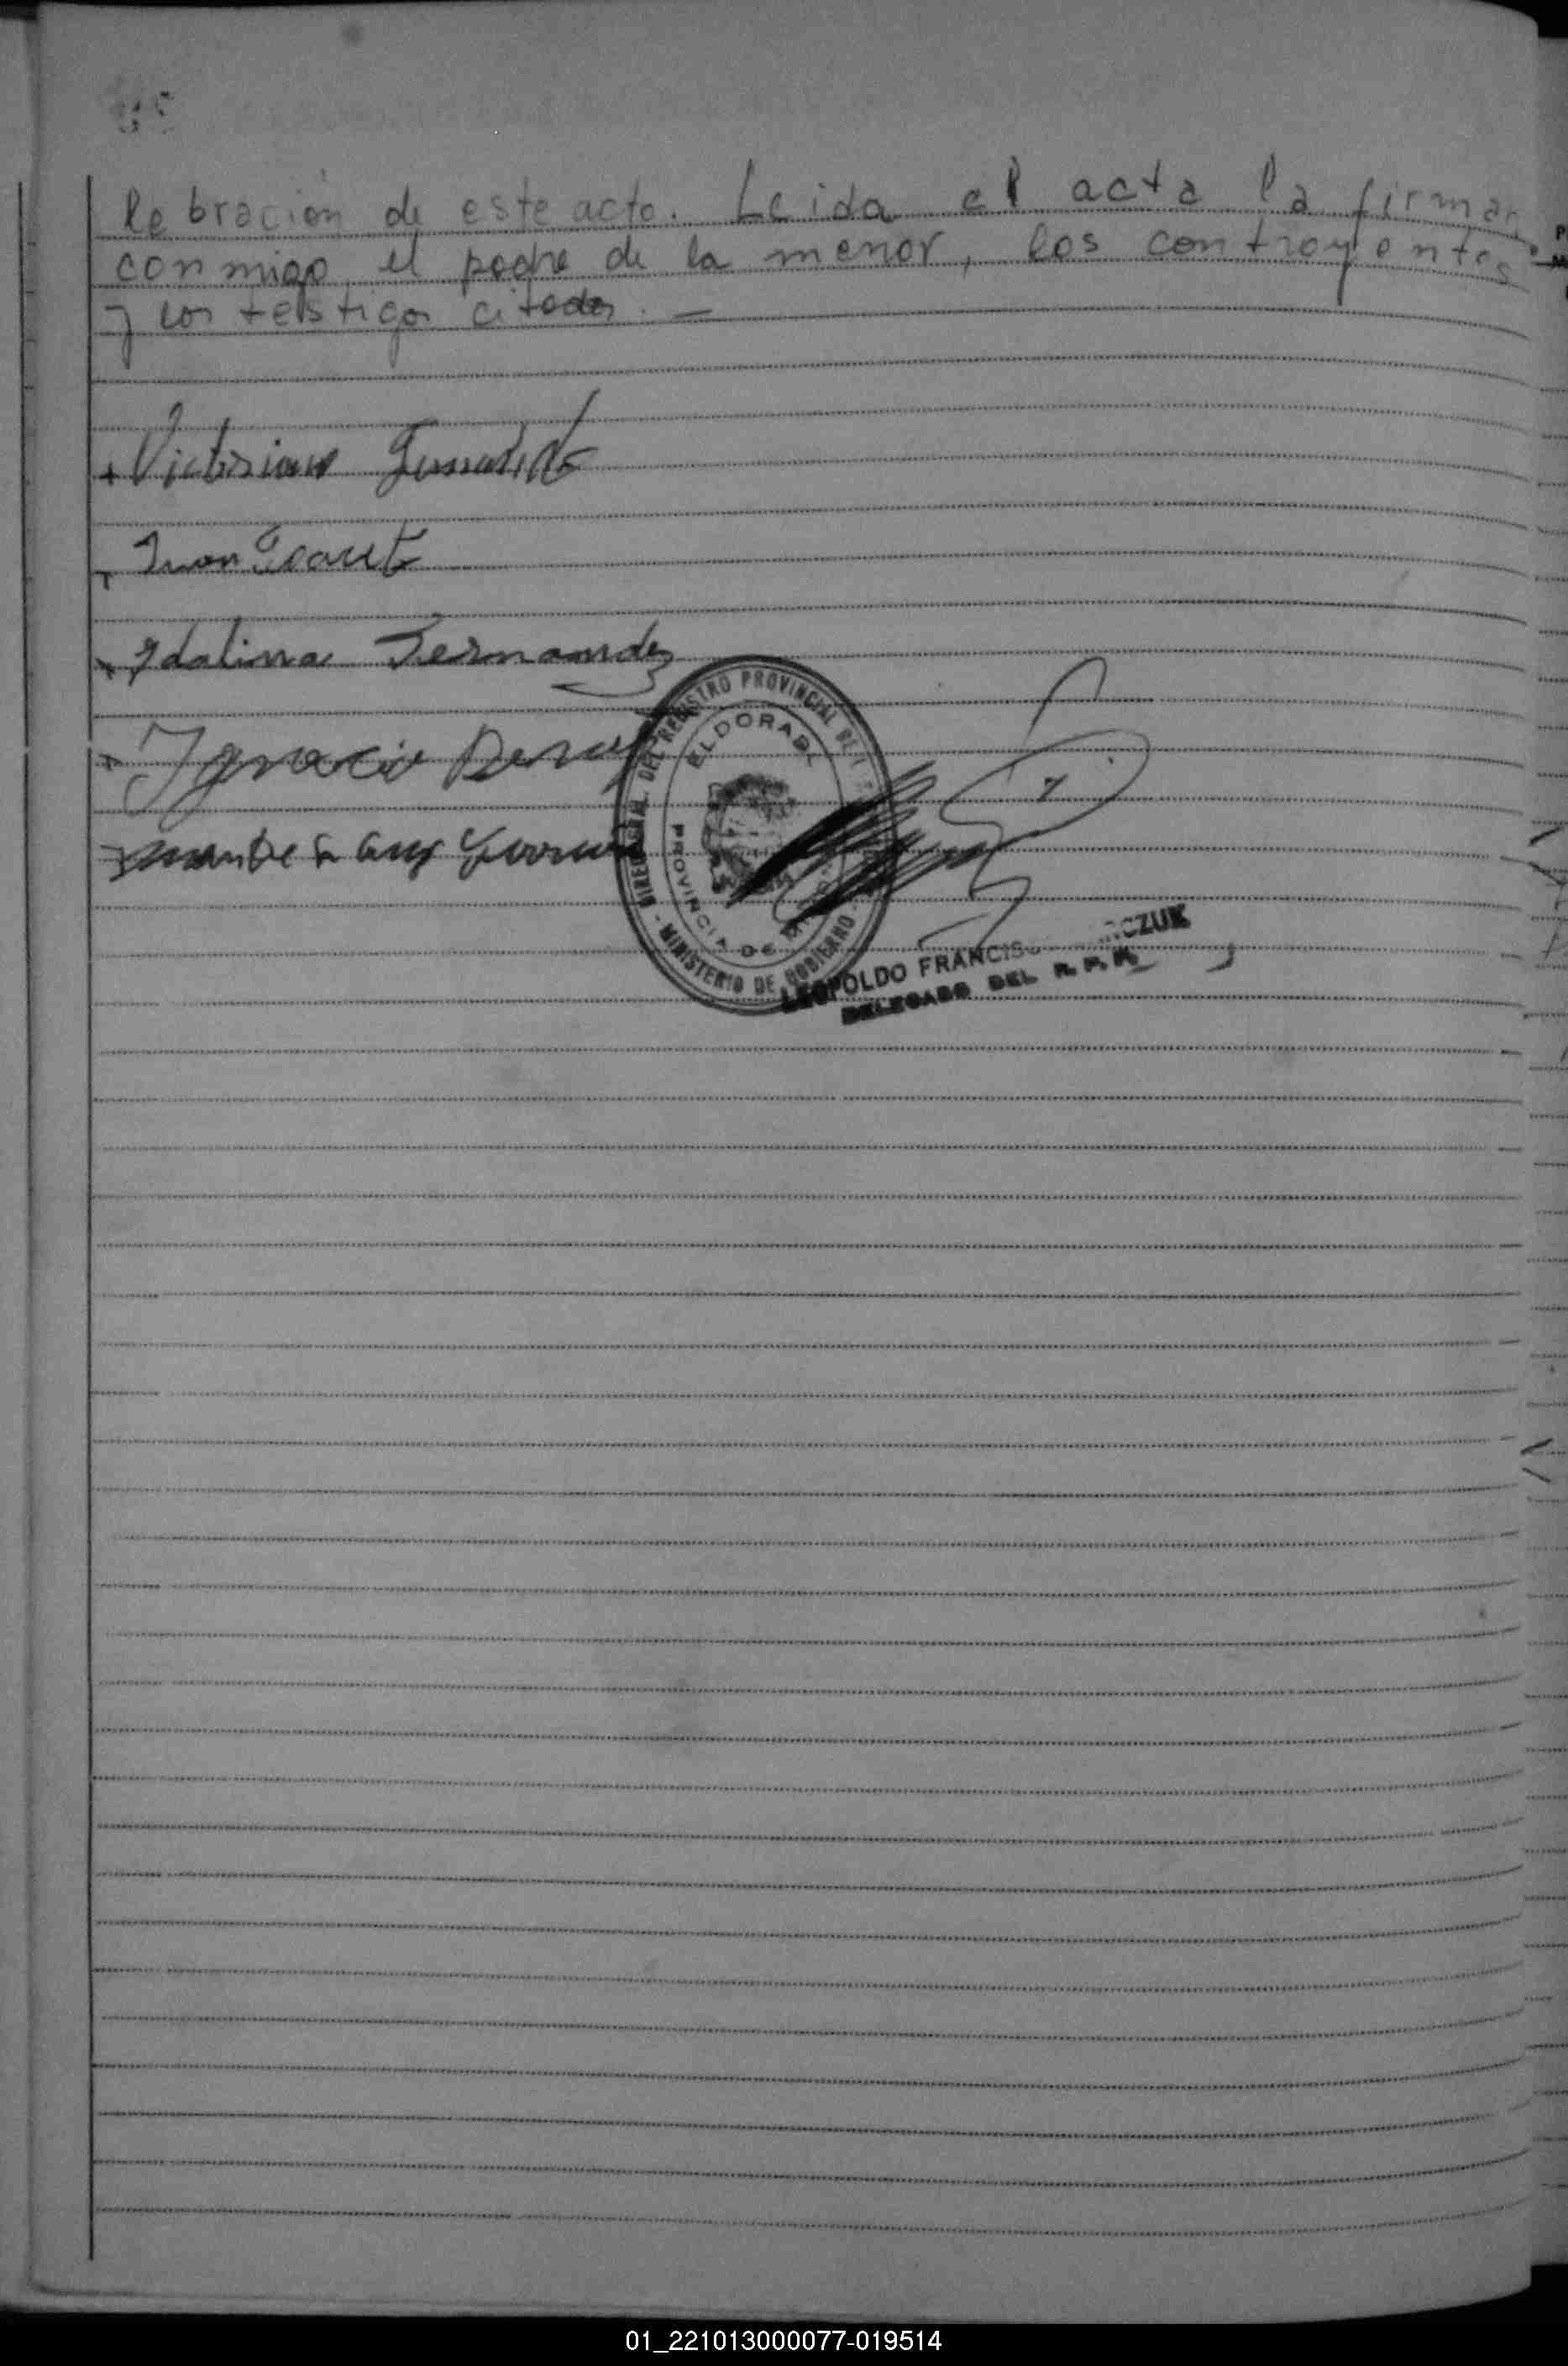 lebración de este acto. Leida el acta la firman
conmigo el padre de la menor, los contrayentes
y los testigos citados. —
Victoriano
Juan
Idalina Fernandez
Ignacio
DEL REGISTRO PROVINCIAL DE
ELDORADO
PROVINCIA DE
MINISTERIO DE GOBIERNO
LEOPOLDO FRANCISCO
DELEGADO DEL R. P. P.
01_221013000077-019514